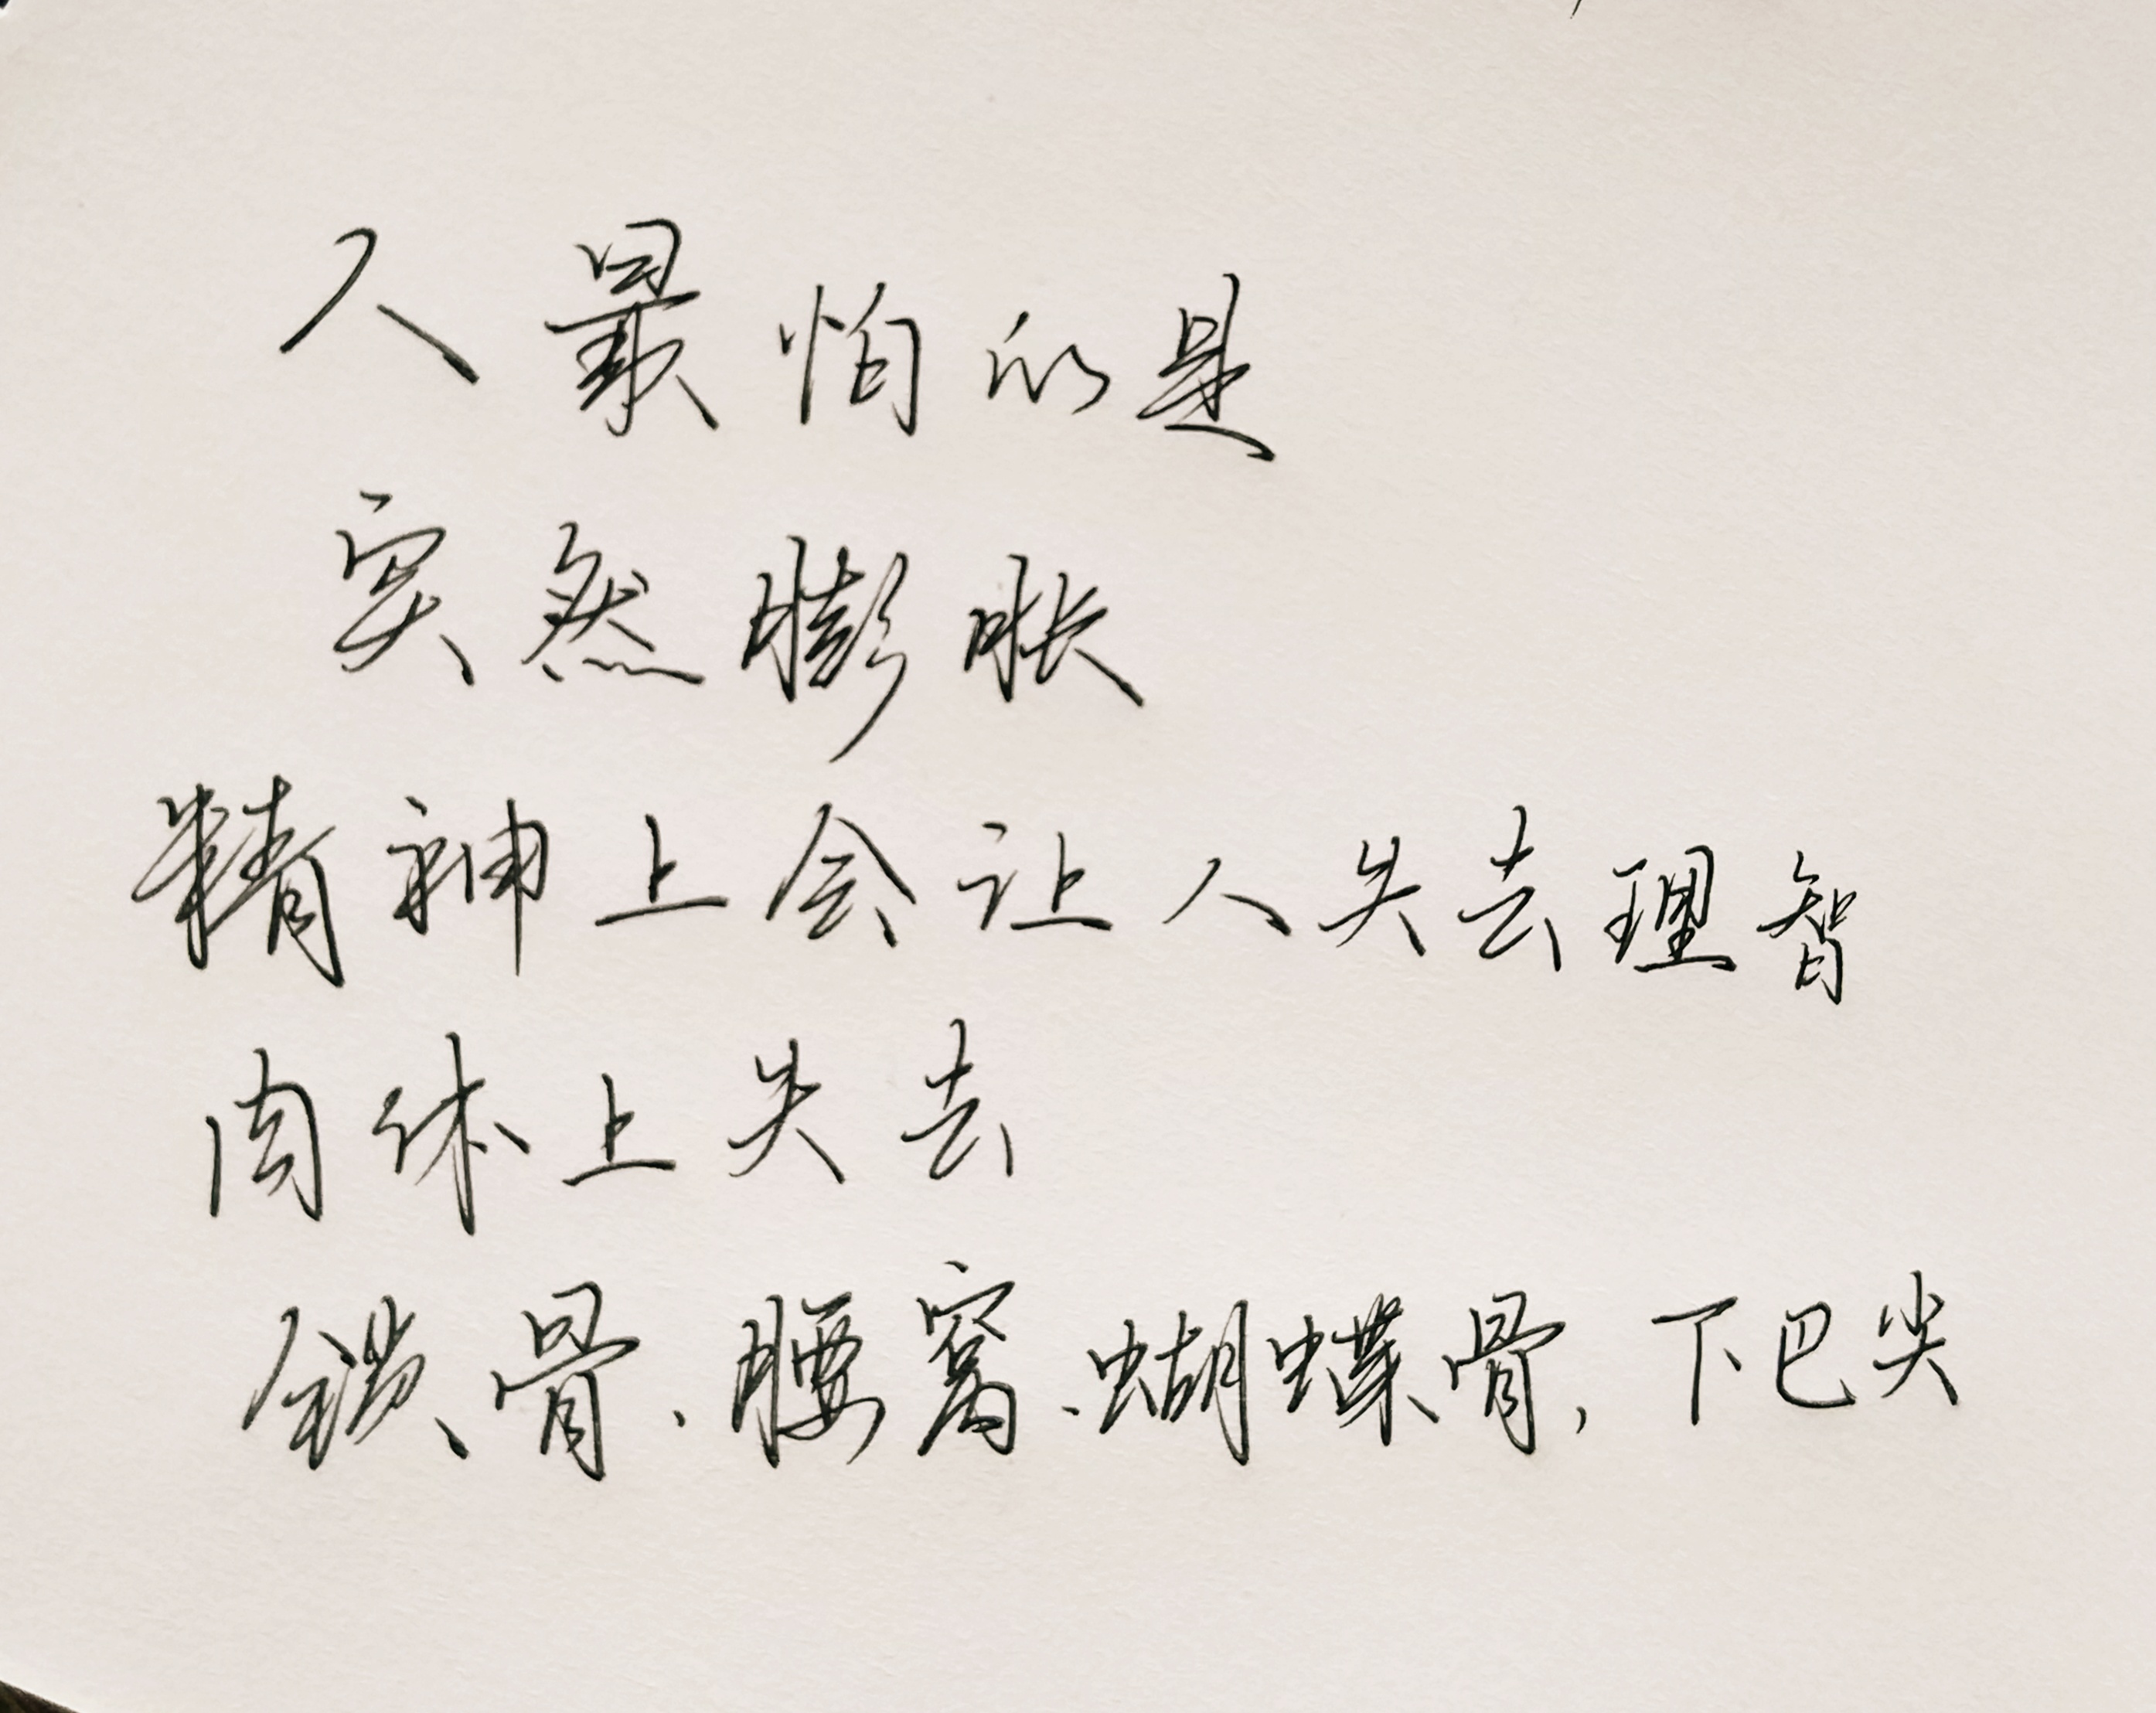 人最怕的是
突然膨胀
精神上会让人失去理智
肉体上失去
锁骨、腰窝、蝴蝶骨,下巴尖